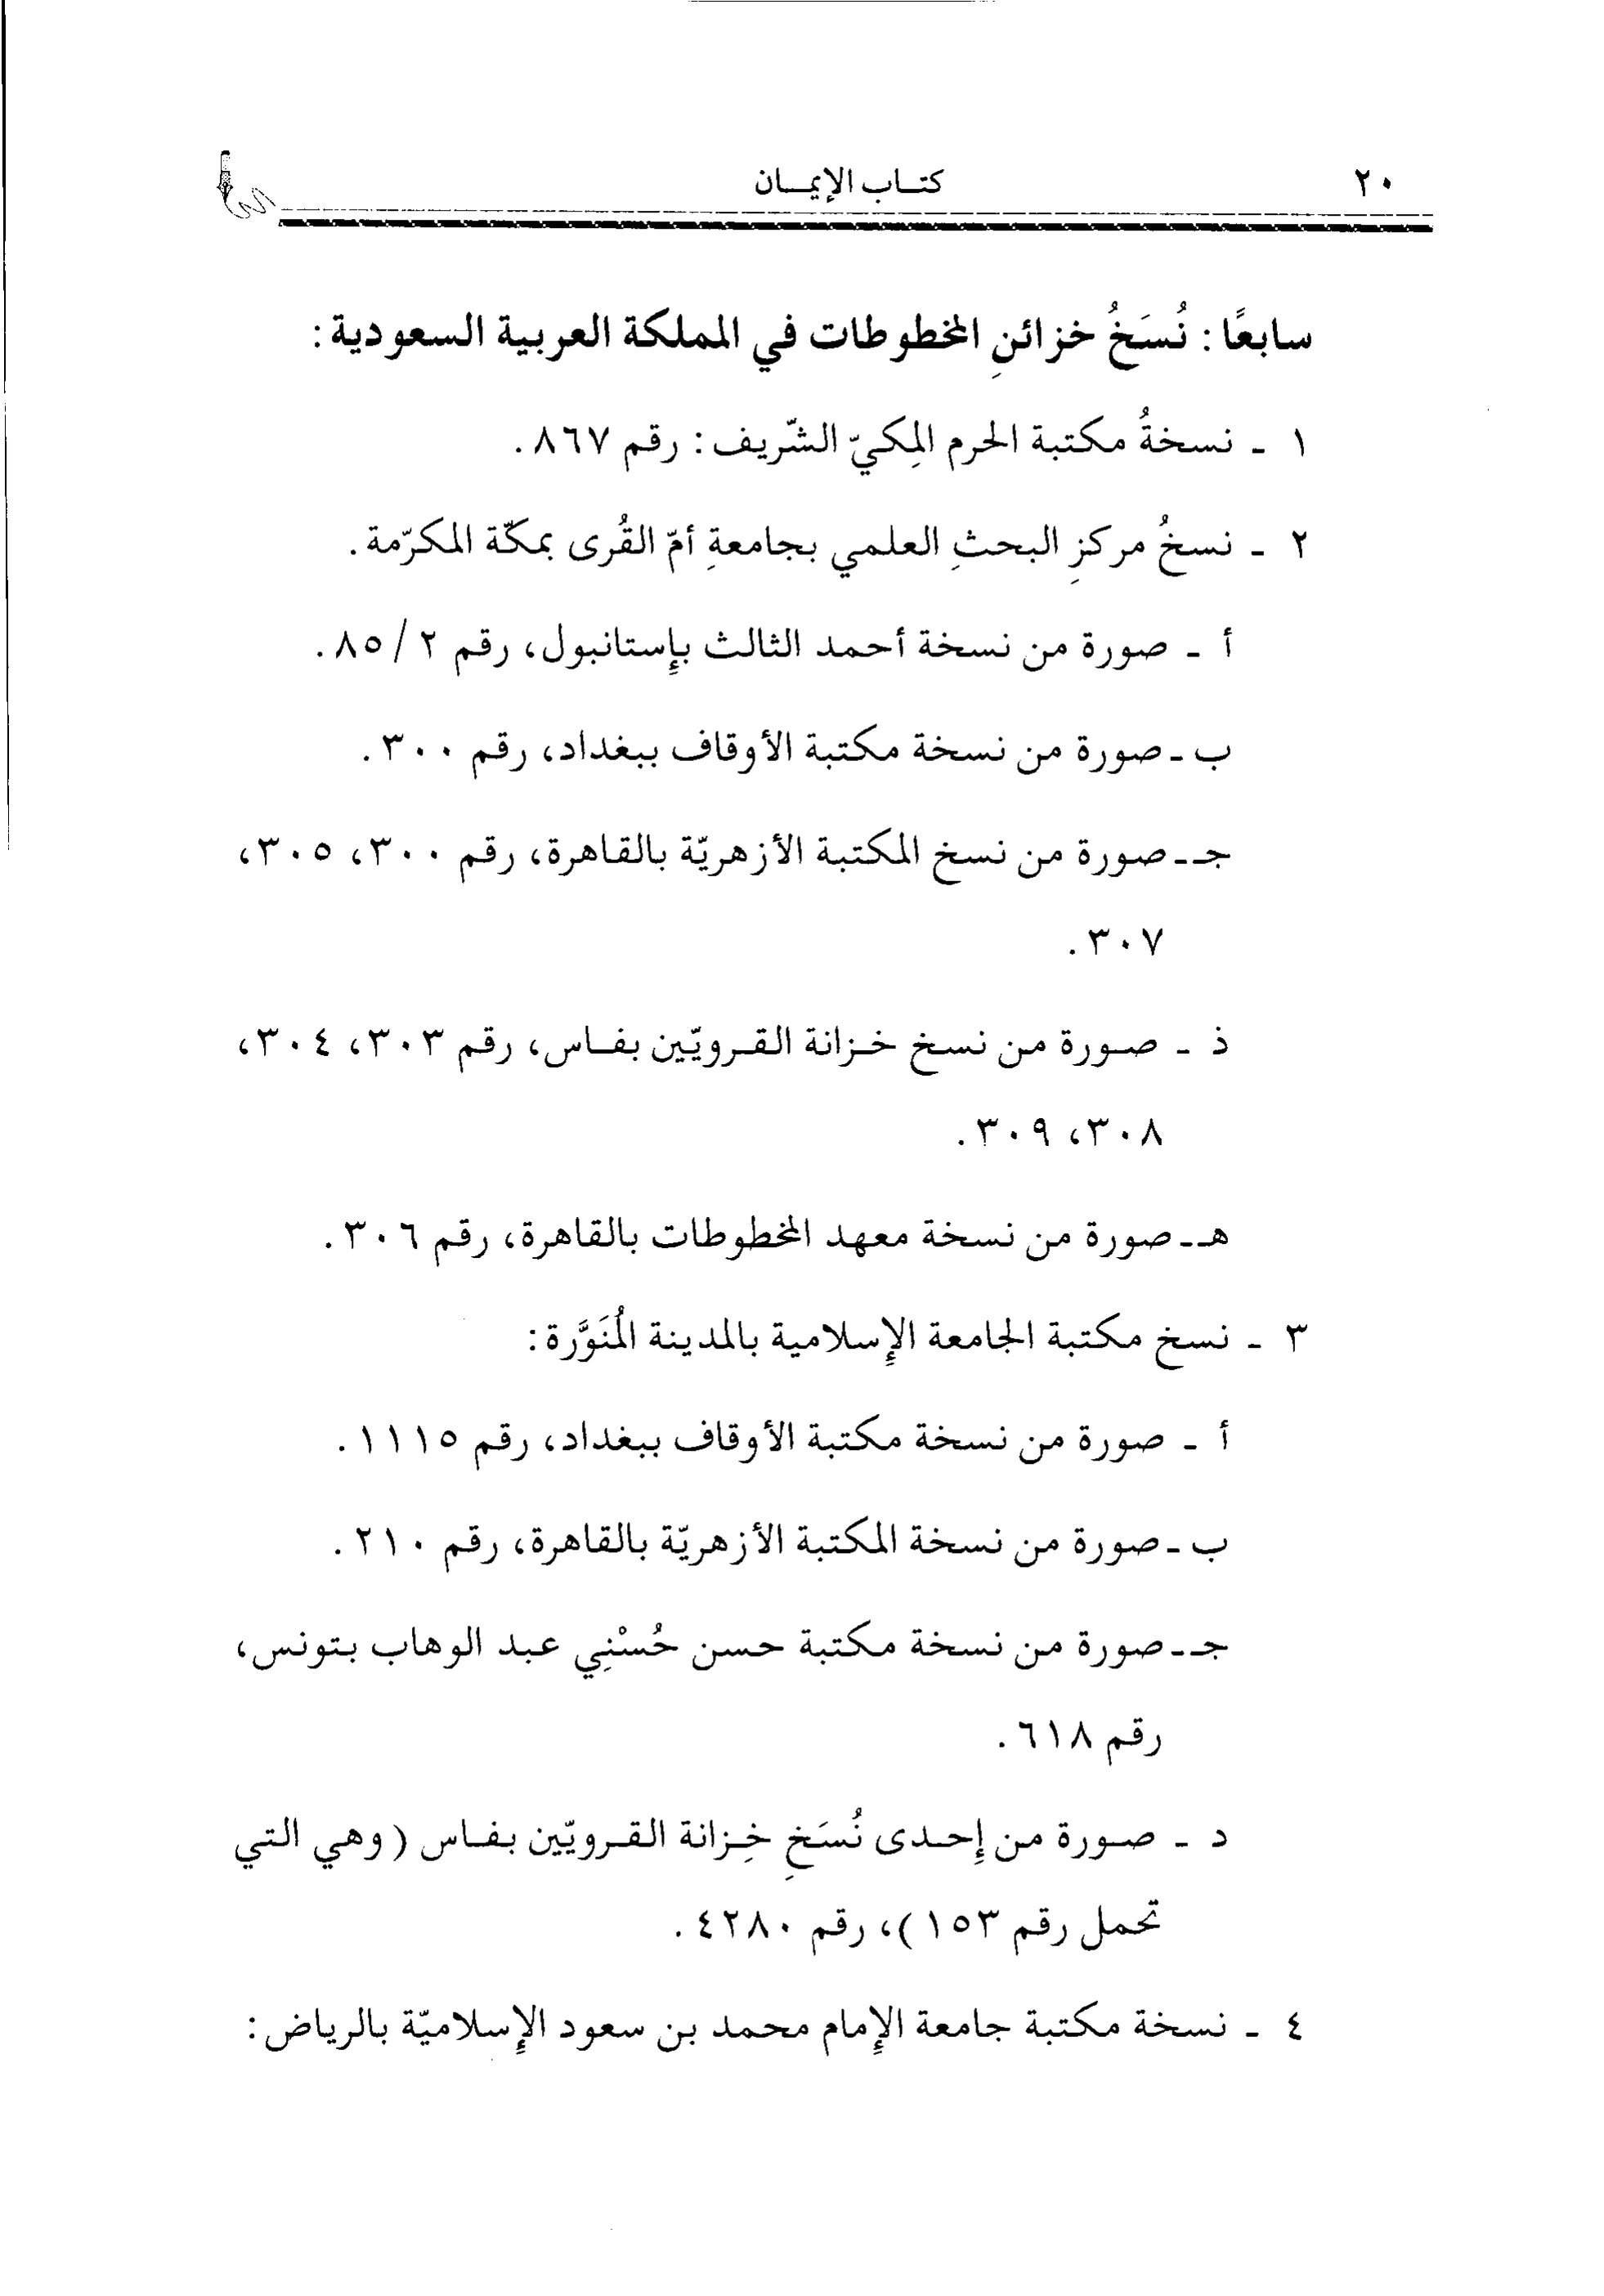 ٢٠
كتاب الإيمان
سابعًا: نُسَخُ خزائنِ المخطوطات في المملكة العربية السعودية:
١ - نسخةُ مكتبة الحرم المِكيّ الشّريف: رقم ٨٦٧.
٢ - نسخُ مركزِ البحثِ العلمي بجامعةِ أمّ القُرى بمكّة المكرّمة.
أ - صورة من نسخة أحمد الثالث بإستانبول، رقم ٢/ ٨٥.
ب - صورة من نسخة مكتبة الأوقاف ببغداد، رقم ٣٠٠.
جـ - صورة من نسخ المكتبة الأزهريّة بالقاهرة، رقم ٣٠٠، ٣٠٥،
٣٠٧.
ذ - صورة من نسخ خزانة القرويّين بفاس، رقم ٣٠٣، ٣٠٤،
٣٠٨، ٣٠٩.
هـ - صورة من نسخة معهد المخطوطات بالقاهرة، رقم ٣٠٦.
٣ - نسخ مكتبة الجامعة الإسلامية بالمدينة المُنَوَّرة:
أ - صورة من نسخة مكتبة الأوقاف ببغداد، رقم ١١١٥.
ب - صورة من نسخة المكتبة الأزهريّة بالقاهرة، رقم ٢١٠.
جـ - صورة من نسخة مكتبة حسن حُسْنِي عبد الوهاب بتونس،
رقم ٦١٨.
د - صورة من إحدى نُسَخِ خِزانة القرويّين بفاس (وهي التي
تحمل رقم ١٥٣)، رقم ٤٢٨٠.
٤ - نسخة مكتبة جامعة الإمام محمد بن سعود الإسلاميّة بالرياض: